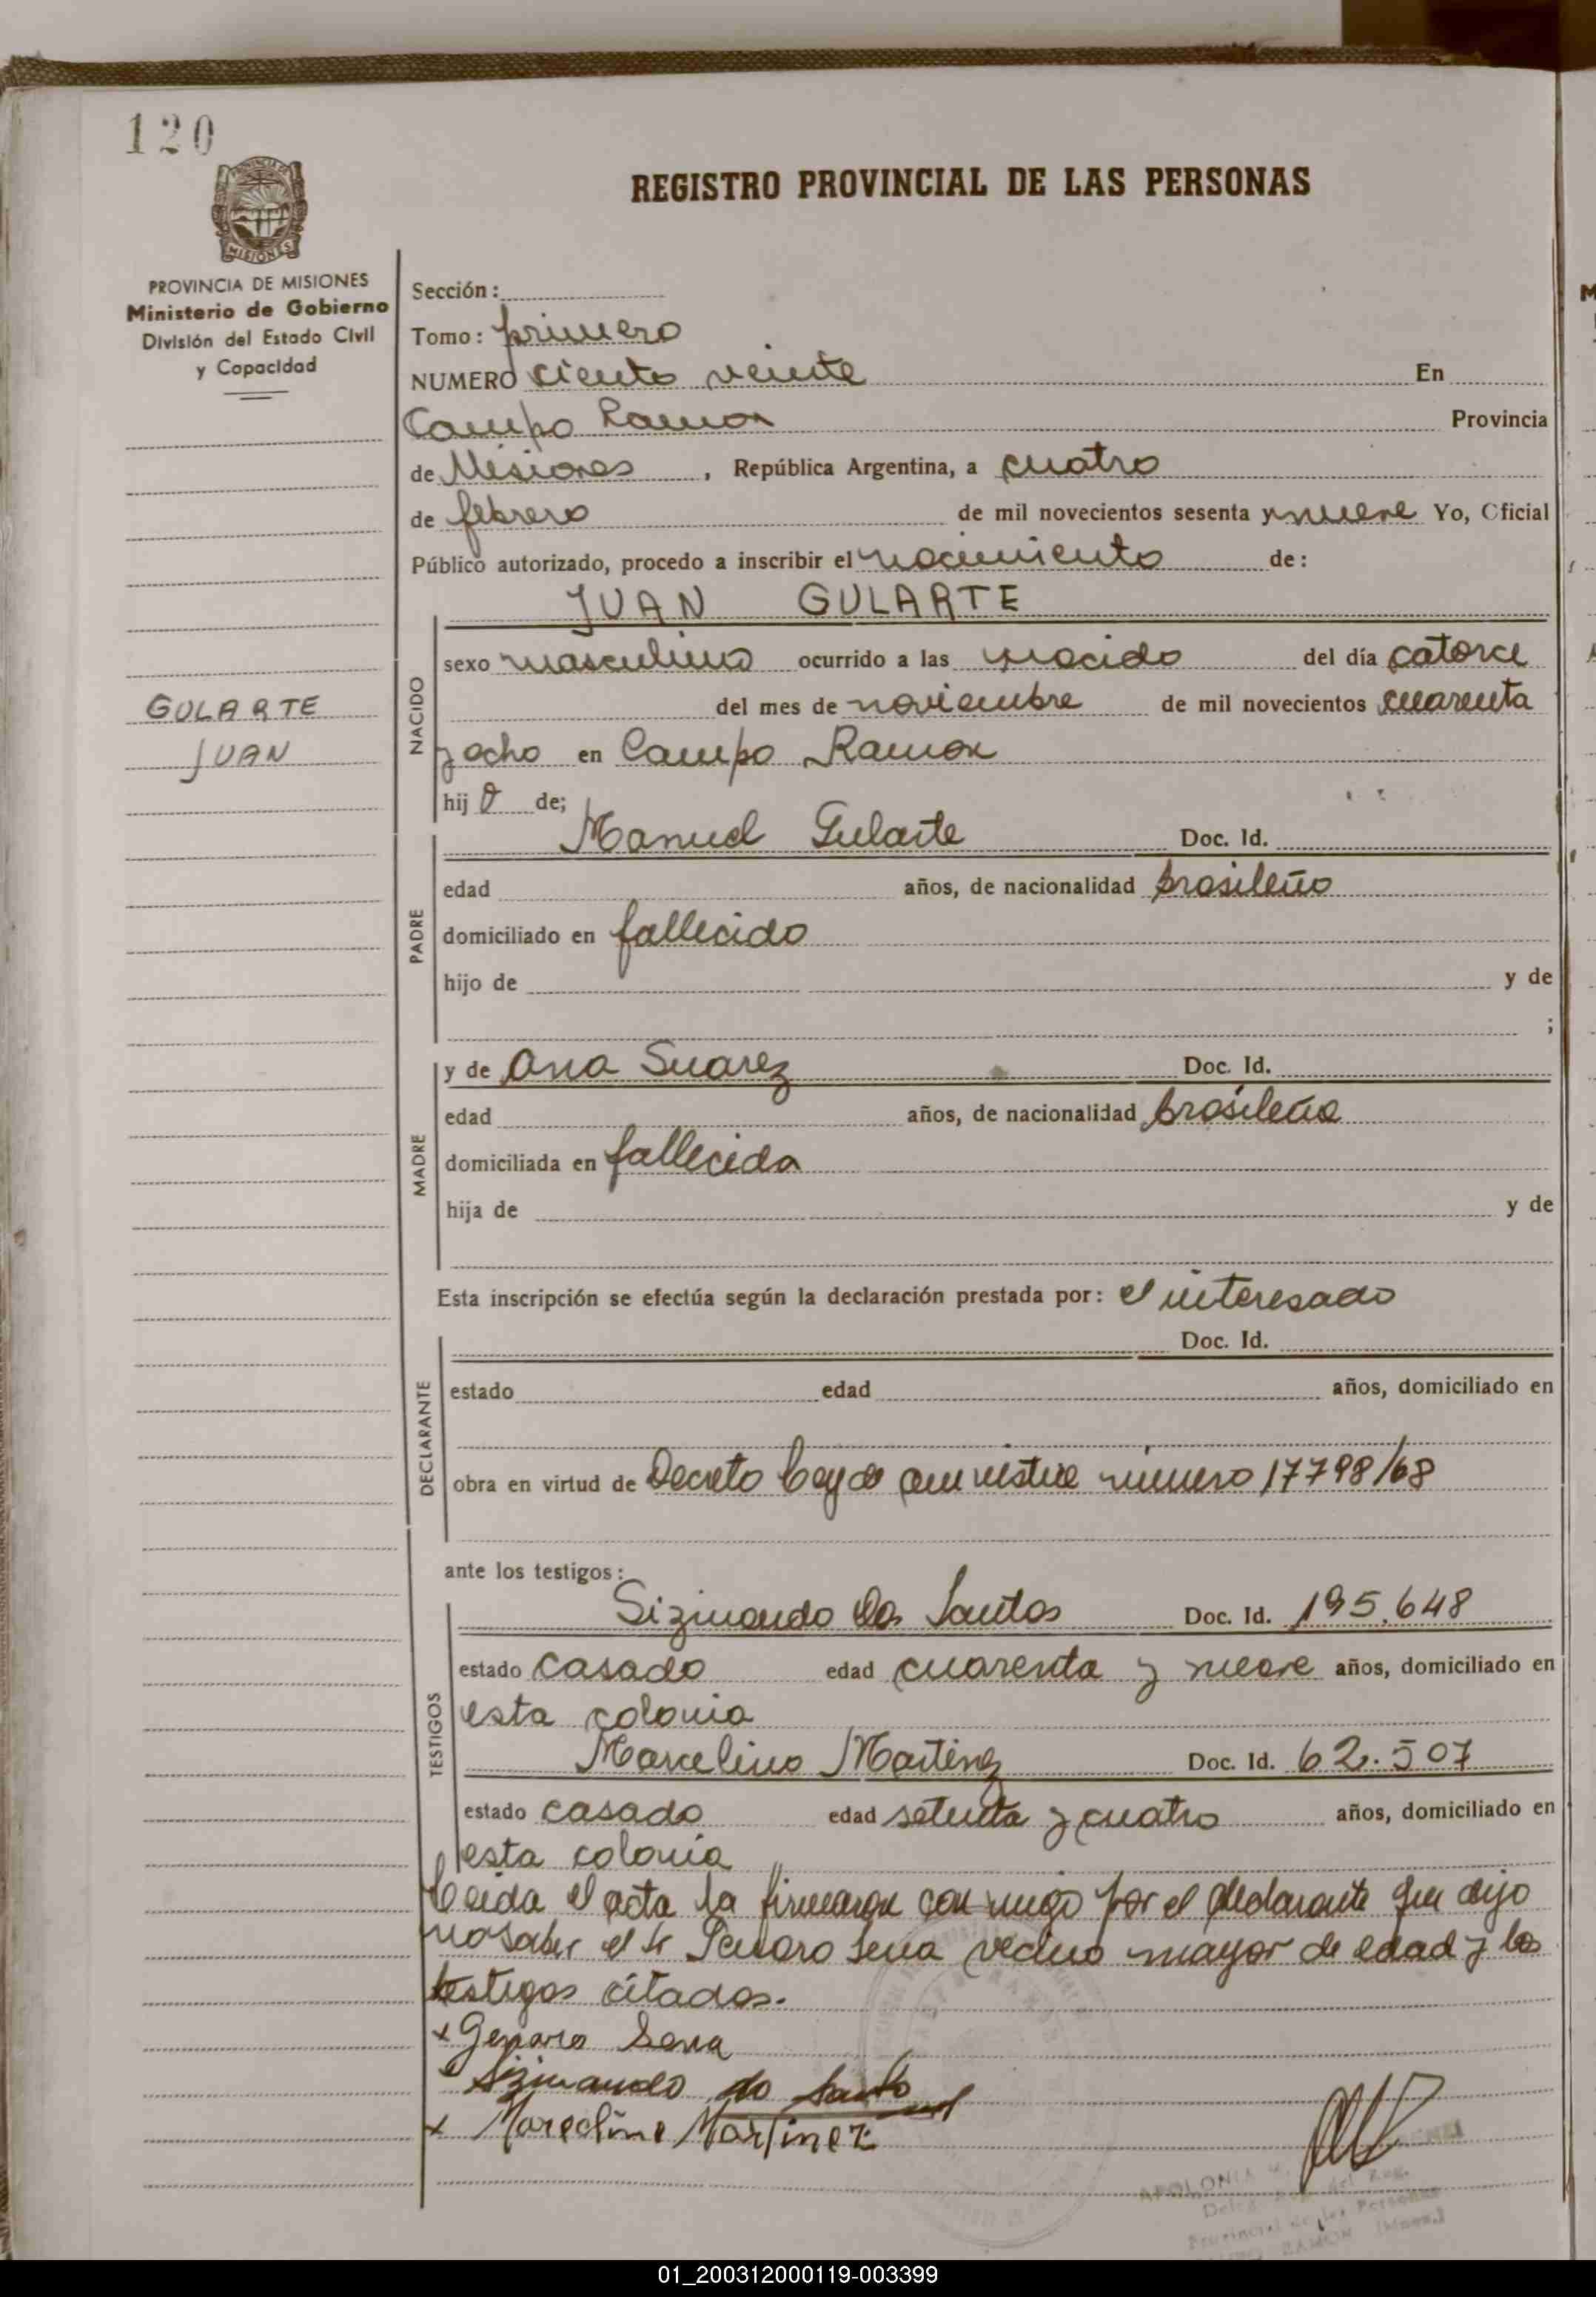 120
REGISTRO PROVINCIAL DE LAS PERSONAS
PROVINCIA DE
MISIONES
PROVINCIA DE MISIONES
Ministerio de Gobierno
División del Estado Civil
y Capacidad
Sección:
Tomo: primero
NUMERO ciento veinte En
Campo Ramon Provincia
de Misiones, República Argentina, a cuatro
de febrero de mil novecientos sesenta y nueve Yo, Oficial
Público autorizado, procedo a inscribir el nacimiento de:
JUAN GULARTE
GULARTE
JUAN
NACIDO
sexo masculino ocurrido a las nacido del día catorce
del mes de noviembre de mil novecientos cuarenta
y ocho en Campo Ramon
hijo de;
PADRE
Manuel Gularte Doc. Id.
edad años, de nacionalidad brasileño
domiciliado en fallecido
hijo de y de
;
MADRE
y de Ana Suarez Doc. Id.
edad años, de nacionalidad brasileña
domiciliada en fallecida
hija de y de
Esta inscripción se efectúa según la declaración prestada por: el interesado
DECLARANTE
Doc. Id.
estado edad años, domiciliado en
obra en virtud de Decreto Ley de numero 17798/68
ante los testigos:
TESTIGOS
Sizinando Dos Santos Doc. Id. 195.648
estado casado edad cuarenta y nueve años, domiciliado en
esta colonia
Marcelino Martinez Doc. Id. 62.507
estado casado edad setenta y cuatro años, domiciliado en
esta colonia
Leida el acta la firmaron conmigo por el declarante que dijo
no saber el Sr Genaro Sena vecino mayor de edad y los
testigos citados.
x Genaro Sena
Sizinando do Santo
x Marcelino Martinez
APOLONIA
Provincial de las Personas
RAMON
01_200312000119-003399